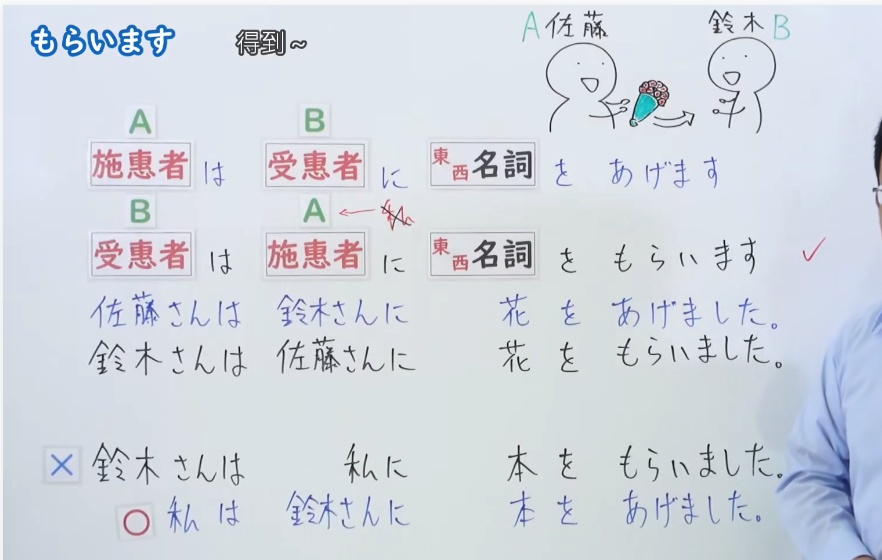 もらいます 得到～
A佐藤 鈴木B
A B
施惠者 は 受惠者 に 東西名詞 を あげます
B A
受惠者 は 施惠者 に 東西名詞 を もらいます
佐藤さんは 鈴木さんに 花 を あげました。
鈴木さんは 佐藤さんに 花 を もらいました。
× 鈴木さんは 私に 本 を もらいました。
○ 私は 鈴木さんに 本 を あげました。